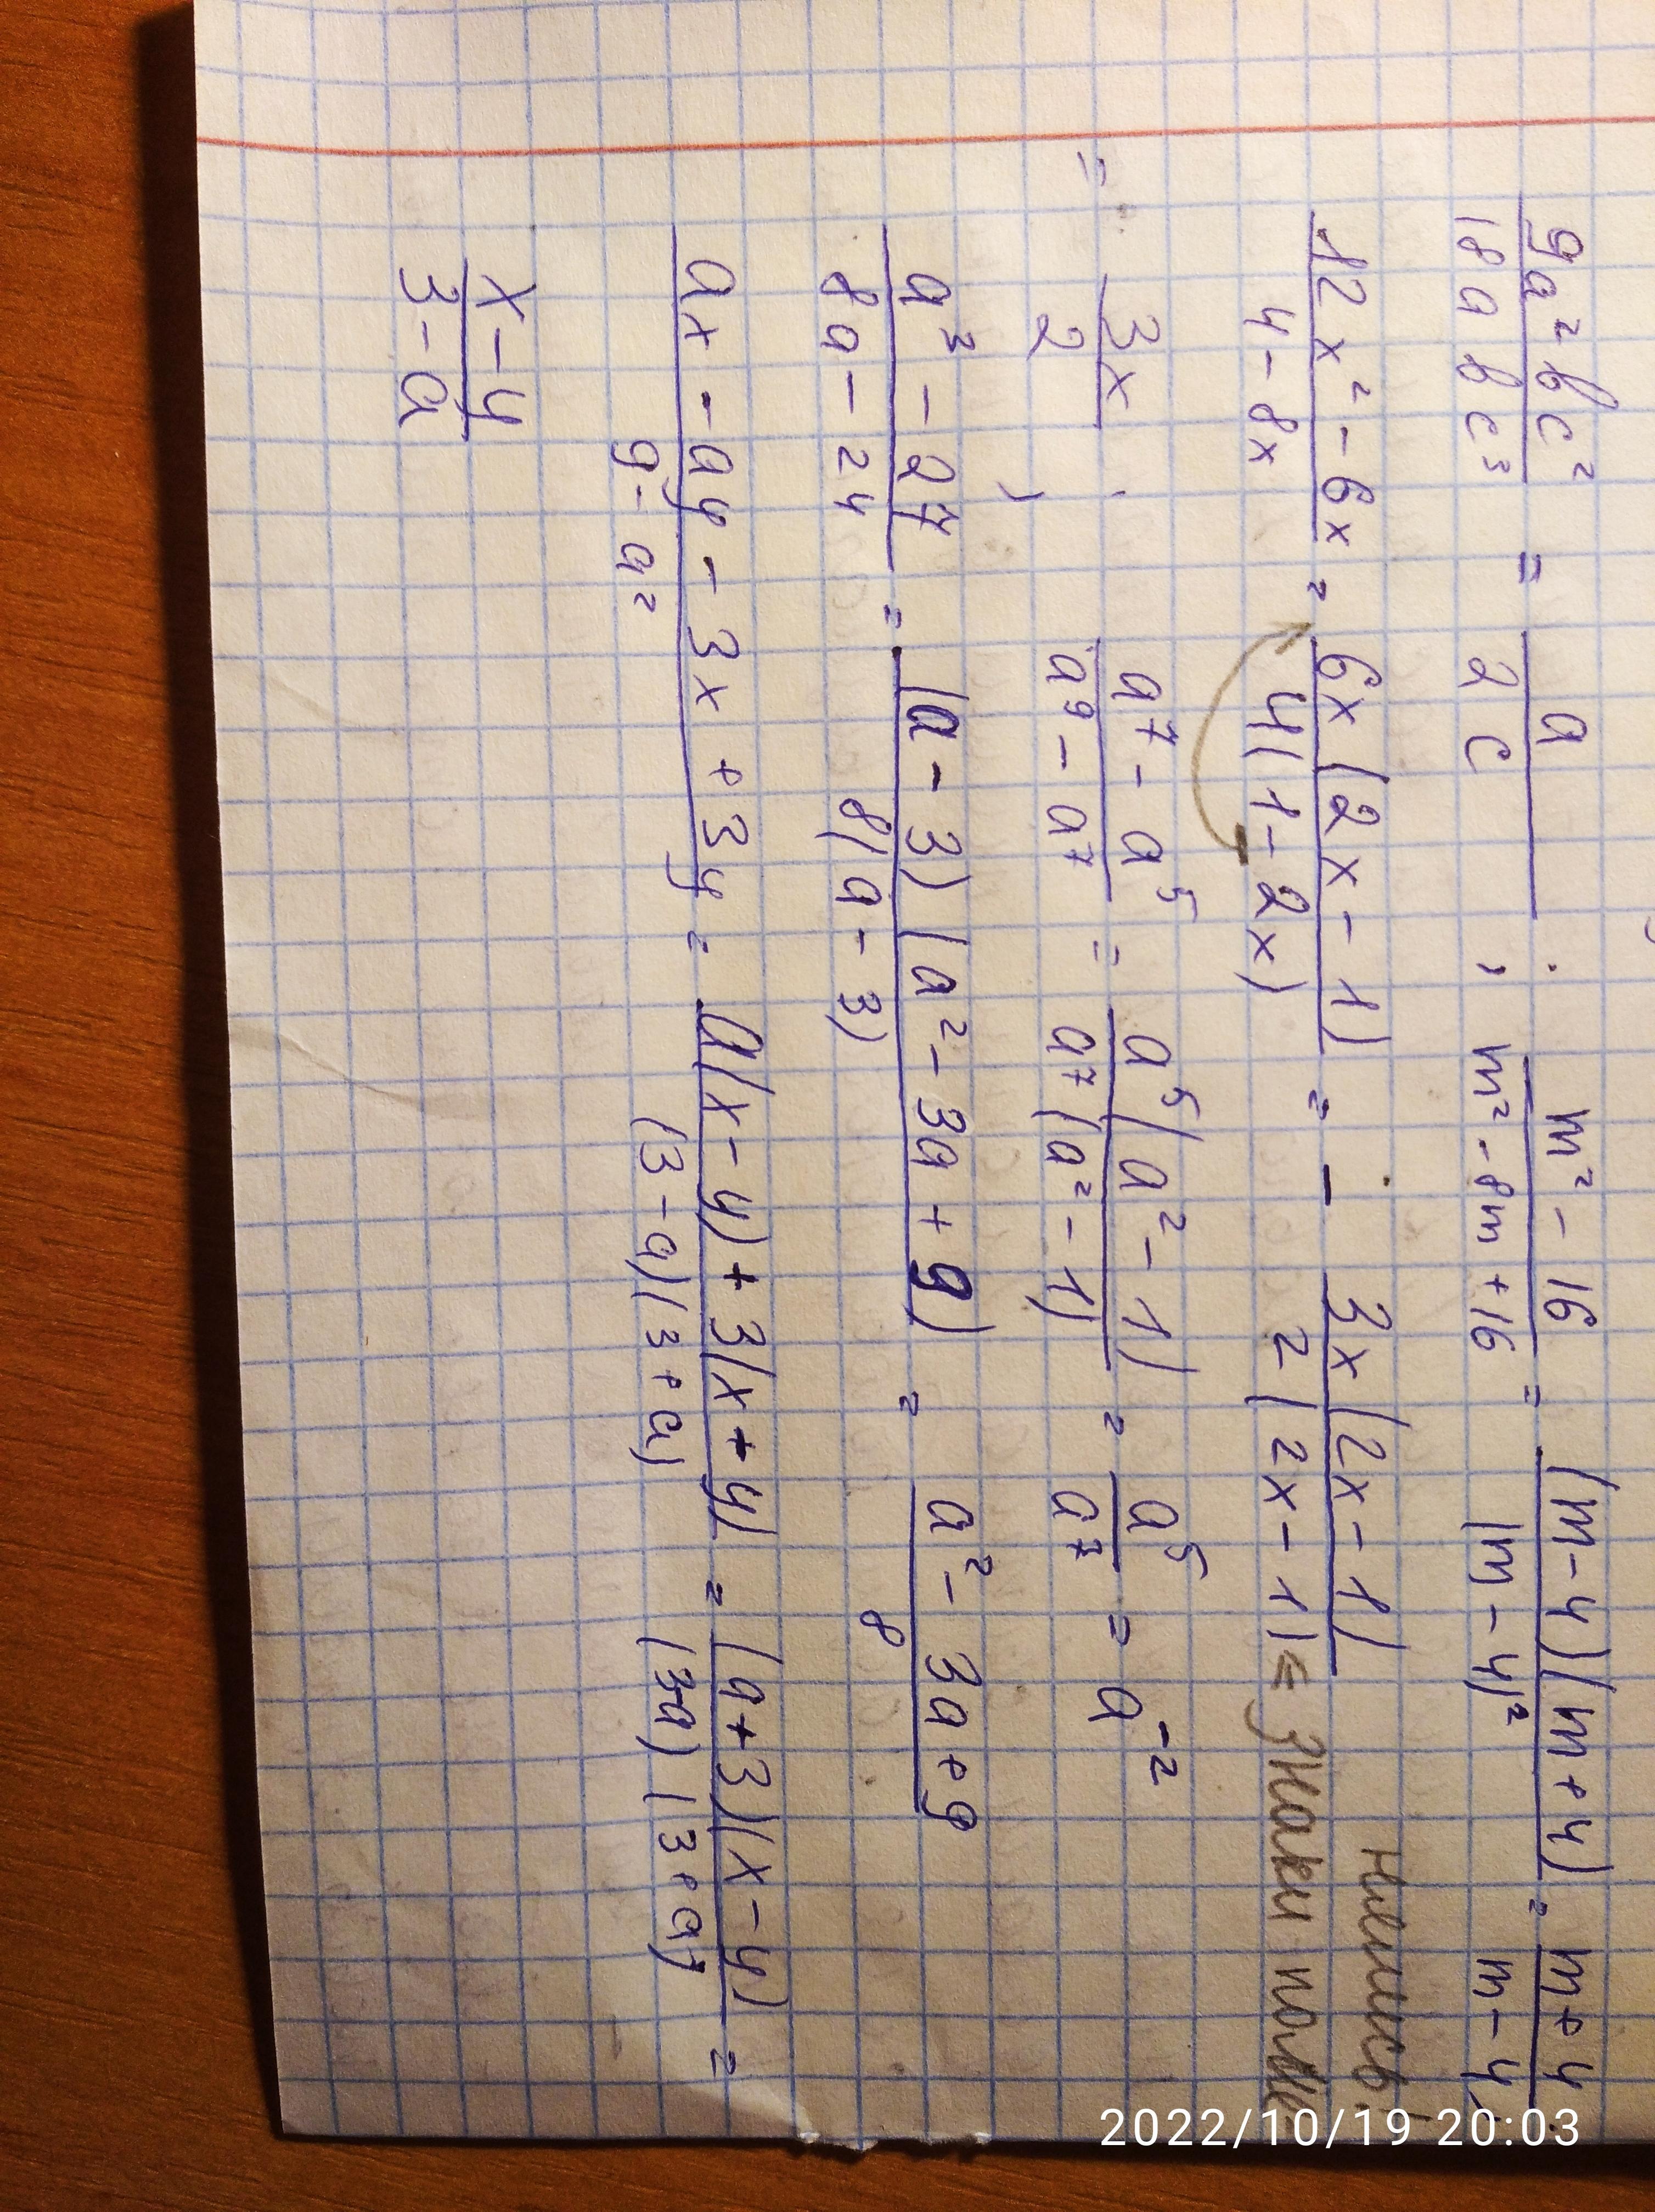 9a²bc² / 18abc³ = a / 2c ; m² - 16 / m² - 8m + 16 = (m-4)(m+4) / (m-4)² = m+4 / m-4,
12x² - 6x / 4 - 8x = 6x(2x-1) / 4(1-2x) = - 3x(2x-1) / 2(2x-1) = знаки поменялись!
= 3x / 2 ; a⁷ - a⁵ / a⁹ - a⁷ = a⁵(a² - 1) / a⁷(a² - 1) = a⁵ / a⁷ = a⁻²
a³ - 27 / 8a - 24 = (a - 3)(a² - 3a + 9) / 8(a - 3) = a² - 3a + 9 / 8
ax - ay - 3x + 3y / 9 - a² = a(x-y) + 3(x+y) / (3-a)(3+a) = (a+3)(x-y) / (3-a)(3+a) =
x - y / 3 - a
2022/10/19 20:03